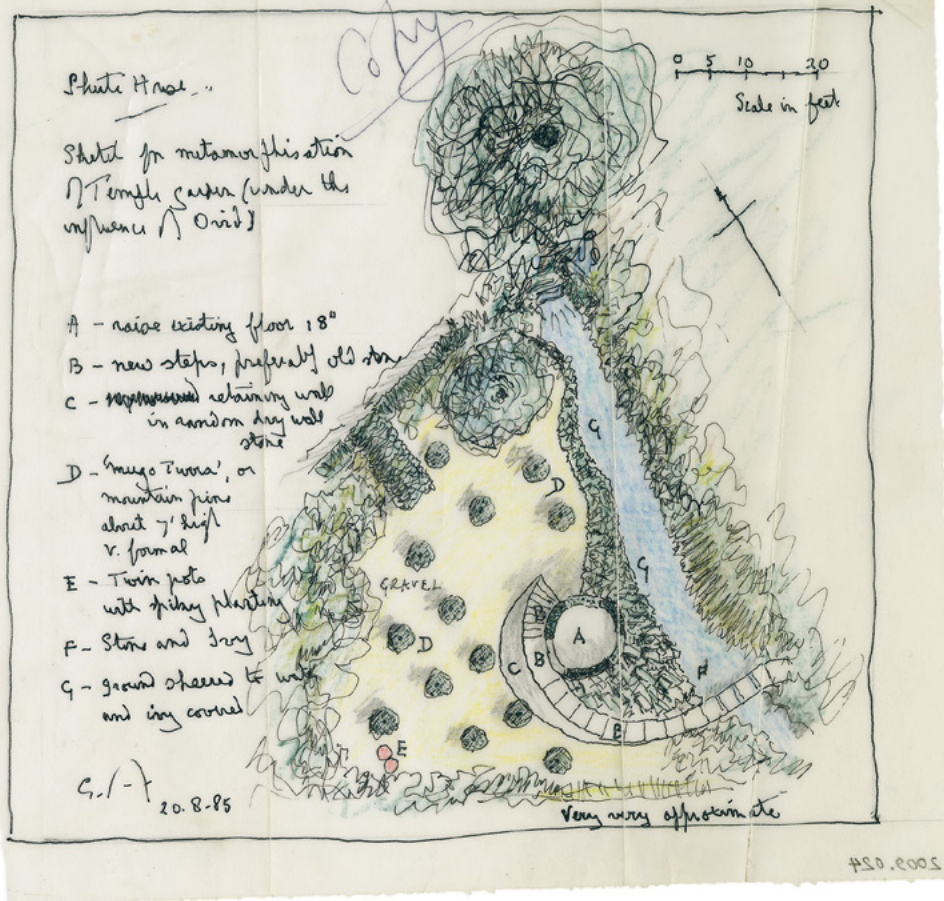 Copy
0 5 10 20
Scale in feet
Shute House
Sketch for metamorphisation
of Temple garden (under the
influence of Ovid)
A - raise existing floor 18"
B - new steps, preferably old stone
C - retaining wall
in random dry wall
stone
D - 'mugo , or
mountain pine
about 7' high
v. formal
E - Twin pots
with spiky planting
F - Stone and Ivy
G - ground sheered to water
and ivy covered
20.8.85
G
D
G
GRAVEL
B
A
D
C
B
F
B
E
Very very approximate
2009.024